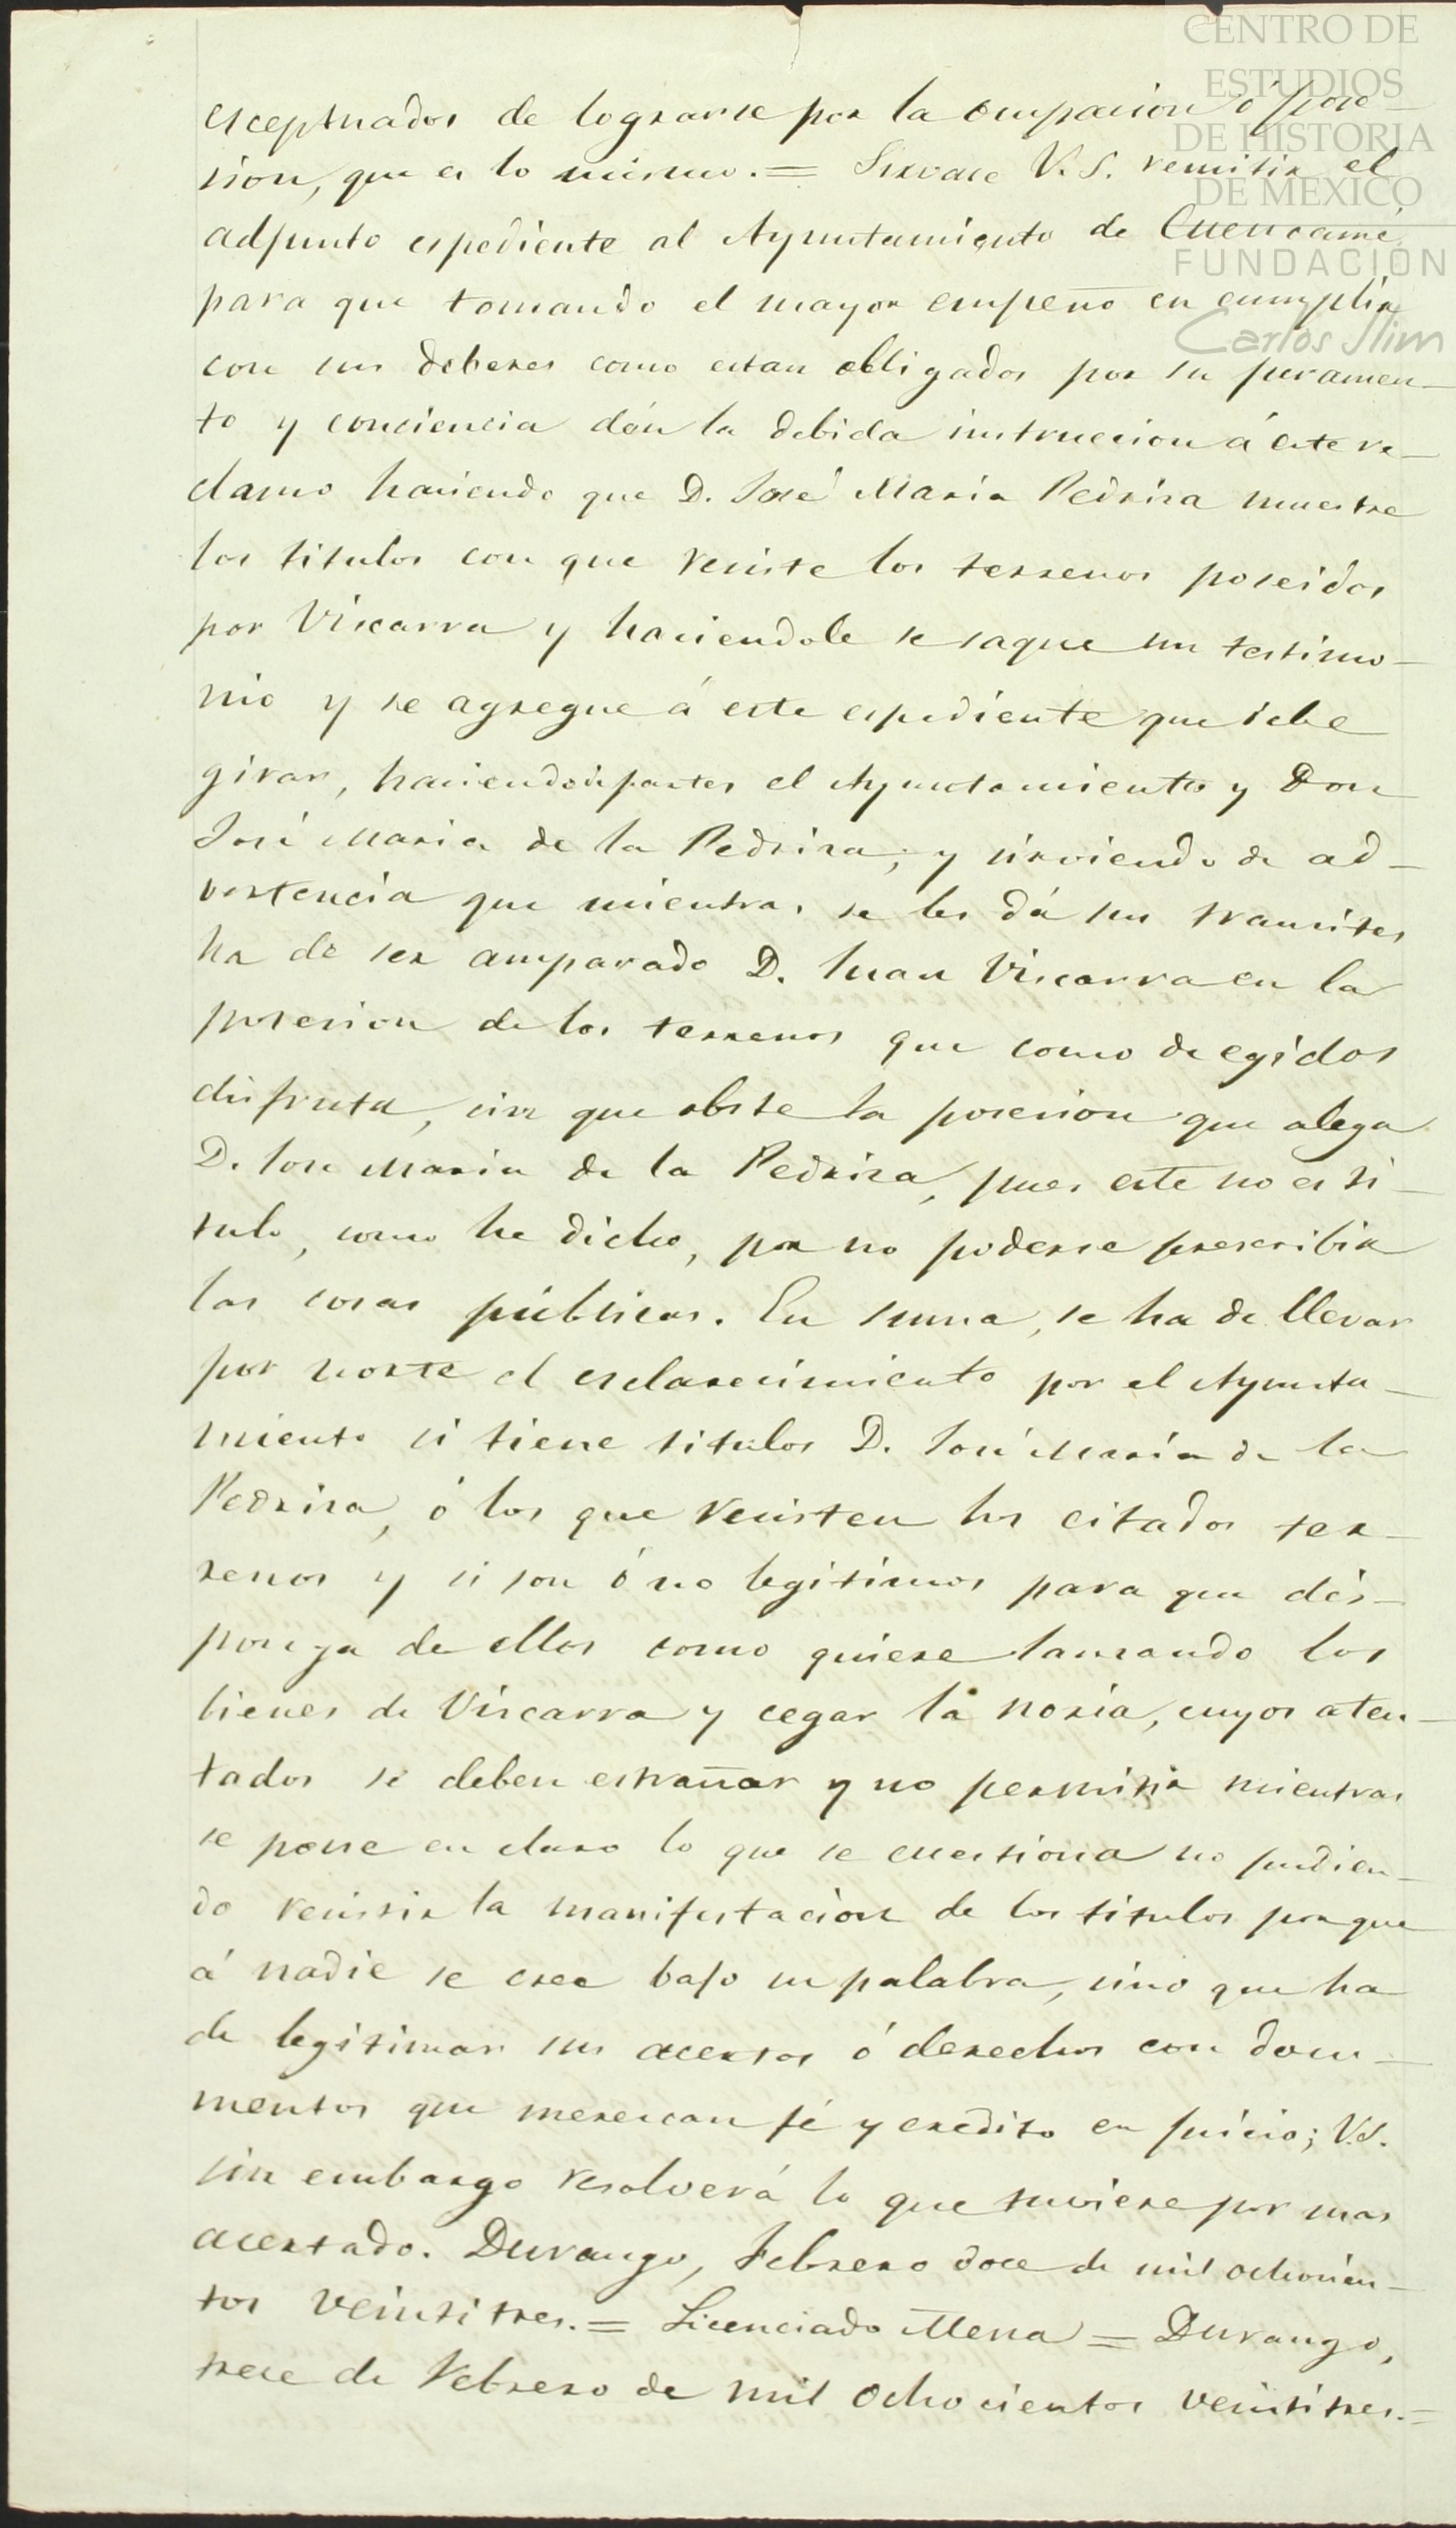 CENTRO DE
ESTUDIOS
DE HISTORIA
DE MEXICO
FUNDACIÓN
Carlos Slim
esceptuados de lograrse por la ocupacion ó pose
sion, que es lo mismo. = Sirvase V. S. remitir el
adjunto espediente al Ayuntamiento de Cuencamé
para que tomando el mayor empeño en cumplir
con sus deberes como estan obligados por su juramen-
to y conciencia dén la debida instruccion á este re-
clamo haciendo que D. José Maria Pedriza muestre
los titulos con que resiste los terrenos poseidos
por Viscarra y haciendole se saque un testimo-
nio y se agregue á este espediente que debe
girar, haciendose partes el Ayuntamiento y Don
José Maria de la Pedriza; y sirviendo de ad-
vertencia que mientras se les dá sus tramites
ha de ser amparado D. Juan Viscarra en la
posesion de los terrenos que como de egidos
disfruta, sin que obste la posesion que alega
D. José Maria de la Pedriza, pues este no es ti-
tulo, como he dicho, por no poderse prescribir
las cosas públicas. En suma, se ha de llevar
por norte el esclarecimiento por el Ayunta-
miento si tiene titulos D. José María de la
Pedriza, ó los que resisten los citados ter-
renos y si son ó no legitimos para que dis-
ponga de ellos como quiere lanzando los
bienes de Viscarra y cegar la noria, cuyos aten-
tados se deben estrañar y no permitir mientras
se pone en claro lo que se cuestiona no pudien-
do resistir la manifestacion de los titulos porque
á nadie se cree bajo su palabra, sino que ha
de legitimar sus acertos ó derechos con docu-
mentos que merescan fé y credito en juicio; V.S.
sin embargo resolverá lo que tuviere por mas
acertado. Durango, Febrero doce de mil ochocien-
tos veintitres. = Licenciado Mena = Durango,
trece de Febrero de mil ochocientos veintitres. =